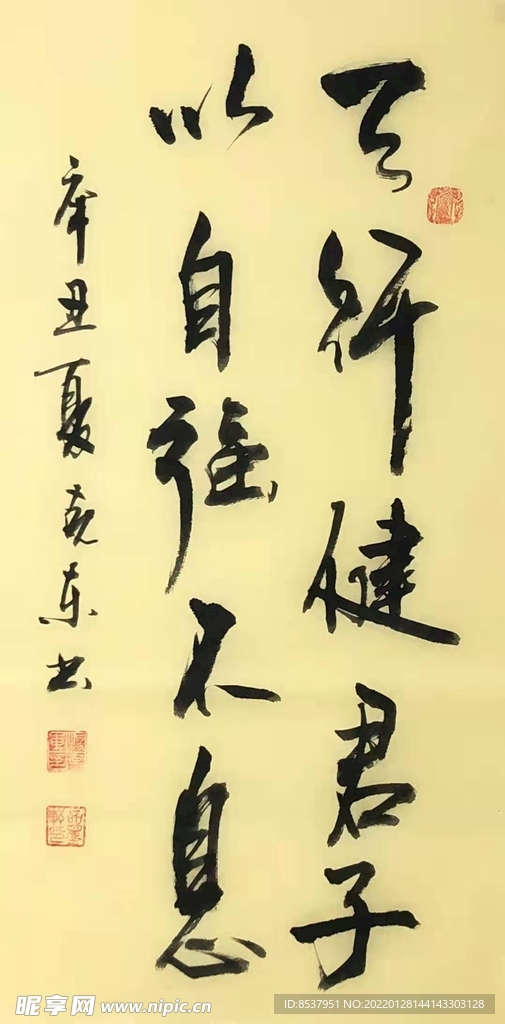 天行健君子
以自强不息
辛丑夏克东书
昵享网 www.nipic.cn
ID:8537951 NO:20220128144143303128